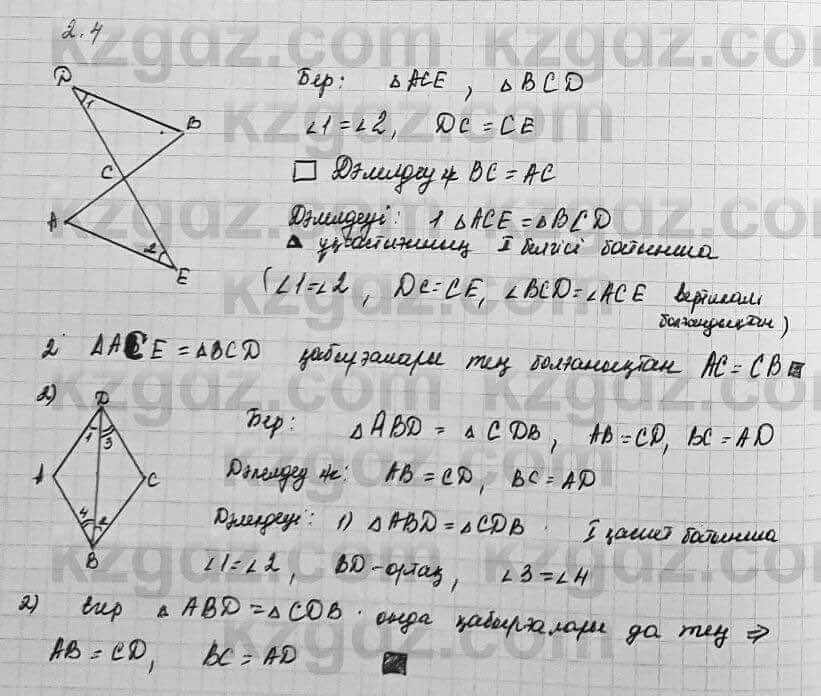 2.4
D
1
B
C
A
2
E
Бер: △ACE, △BCD
∠1=∠2, DC=CE
Дәлелдеу к BC=AC
Дәлелдеуі: 1 △ACE=△BCD
△ теңдігінің I белгісі бойынша
(∠1=∠2, DC=CE, ∠BCD=∠ACE вертикаль
болғандықтан)
2 △ACE=△BCD қабырғалары тең болғандықтан AC=CB
2)
D
1 3
A
C
4 2
B
Бер: △ABD=△CDB, AB=CD, BC=AD
Дәлелдеу к: AB=CD, BC=AD
Дәлелдеуі: 1) △ABD=△CDB. I қасиет бойынша
∠1=∠2, BD-ортақ, ∠3=∠4
2) егер △ABD=△CDB. онда қабырғалары да тең ⇒
AB=CD, BC=AD
kzgdz.com